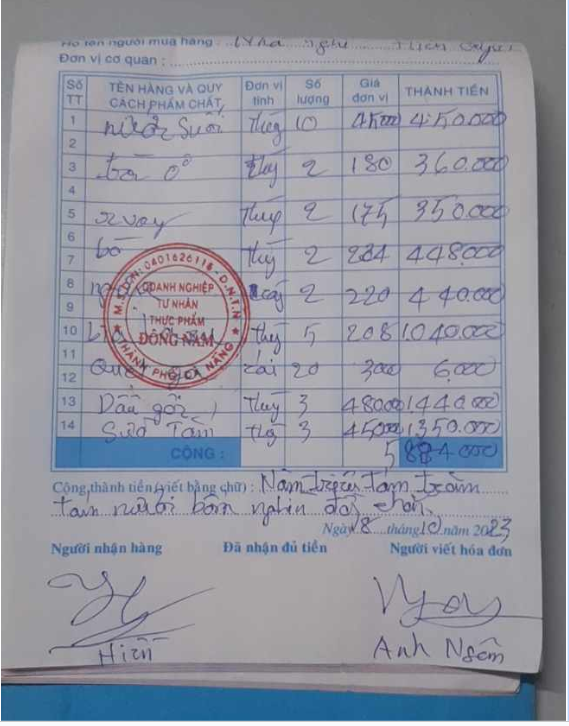 Họ tên người mua hàng : Nhà nghỉ
Đơn vị cơ quan :
Số TT TÊN HÀNG VÀ QUY CÁCH PHẨM CHẤT Đơn vị tính Số lượng Giá đơn vị THÀNH TIỀN
1 nước suối thùg 10 45000 450.000
2
3 thùg 2 180 360.000
4
5 thùg 2 175 350.000
6
7 bò thùg 2 224 448.000
8 2 220 440.000
9
10 thùg 5 208 1.040.000
11
12 Que cái 20 300 6.000
13 Dầu gội thùg 3 48000 1440.000
14 Sữa Tắm thg 3 45000 1350.000
CỘNG : 5 884 000
M.S.D.N: 0401626116 - D.N.T.N
DOANH NGHIỆP
TƯ NHÂN
THỰC PHẨM
ĐÔNG NAM
THÀNH PHỐ ĐÀ NẴNG
Cộng thành tiền (viết bằng chữ) : Năm triệu tám trăm
tám mươi bốn nghìn đồng chẵn.
Ngày 18 tháng 10 năm 2023
Người nhận hàng Đã nhận đủ tiền Người viết hóa đơn
Hiền Anh Ngâm